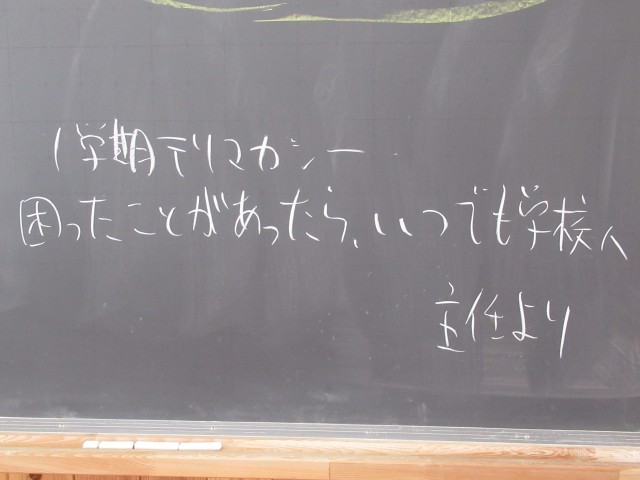 1学期テリマカシー
困ったことがあったら、いつでも学校へ
主任より